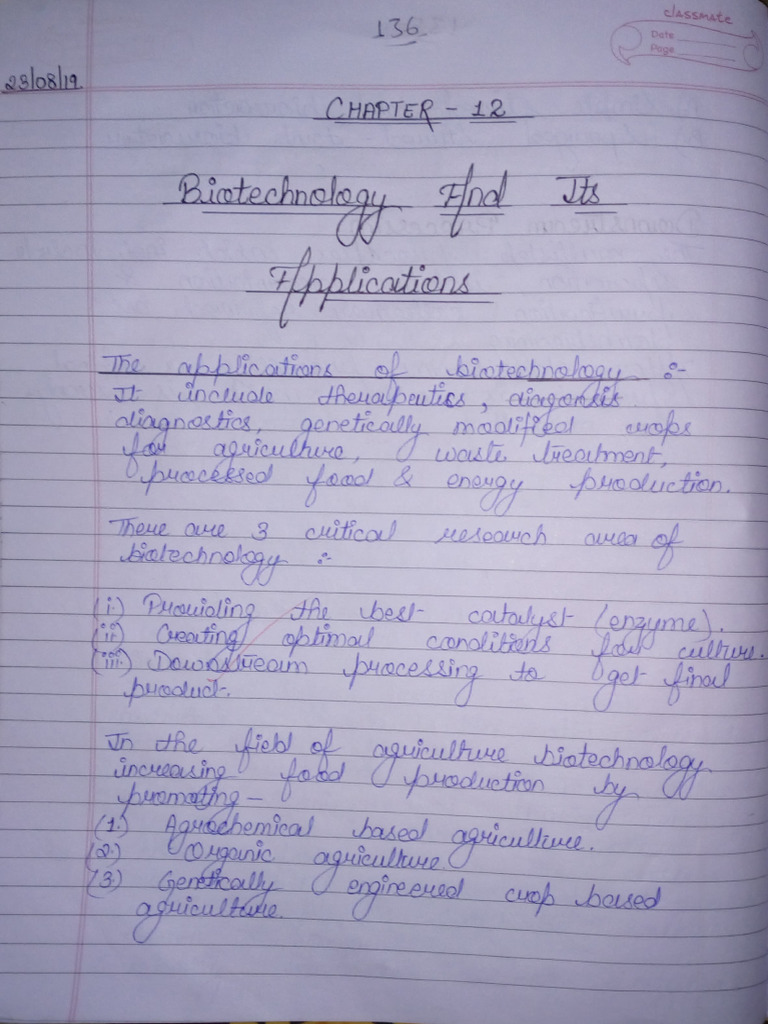 136
classmate
Date
Page
23/08/19
CHAPTER - 12
Biotechnology And Its
Applications
The applications of biotechnology :-
It include therapeutics, diagonsis
diagnostics, genetically modified crops
for agriculture, waste treatment,
processed food & energy production.
There are 3 critical research area of
biotechnology :-
(i.) Providing the best catalyst (enzyme).
(ii) Creating optimal conditions for culture.
(iii.) Downstream processing to get final
product.
In the field of agriculture biotechnology
increasing food production by
promoting -
(1.) Agrochemical based agriculture.
(2.) Organic agriculture.
(3.) Genetically engineered crop based
agriculture.